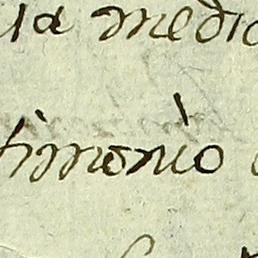 la medic
timonio